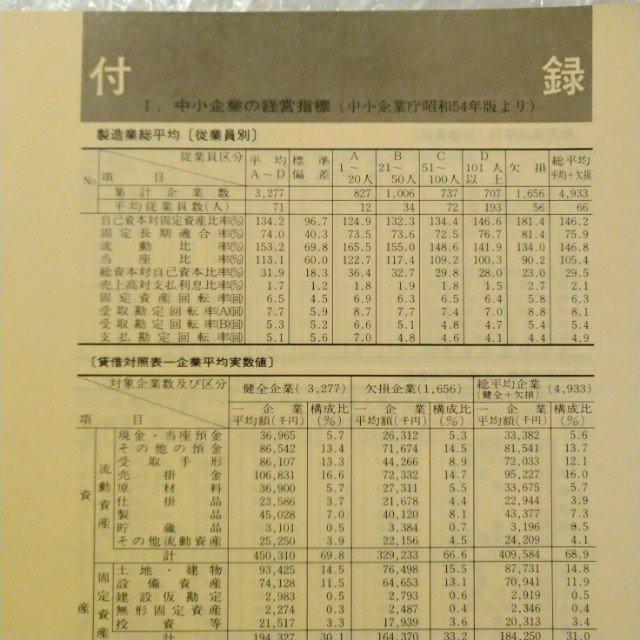 付 録
1. 中小企業の経営指標(中小企業庁昭和54年版より)
製造業総平均〔従業員別〕
No. 項 目 従業員区分 平均 A~D 標準偏差 A 1~20人 B 21~50人 C 51~100人 D 101人以上 欠損 総平均 平均+欠損
集計企業数 3,277 827 1,006 737 707 1,656 4,933
平均従業員数(人) 71 12 34 72 193 56 66
自己資本対固定資産比率(%) 134.2 96.7 124.9 132.3 134.4 146.6 181.4 146.2
固定長期適合率(%) 74.0 40.3 73.5 73.6 72.5 76.7 81.4 75.9
流動比率(%) 153.2 69.8 165.5 155.0 148.6 141.9 134.0 146.8
当座比率(%) 113.1 60.0 122.7 117.4 109.2 100.3 90.2 105.4
総資本対自己資本比率(%) 31.9 18.3 36.4 32.7 29.8 28.0 23.0 29.5
売上高対支払利息比率(%) 1.7 1.2 1.8 1.9 1.8 1.5 2.7 2.1
固定資産回転率(回) 6.5 4.5 6.9 6.3 6.5 6.4 5.8 6.3
受取勘定回転率(A)(回) 7.7 5.9 8.7 7.7 7.4 7.0 8.8 8.1
受取勘定回転率(B)(回) 5.3 5.2 6.6 5.1 4.8 4.7 5.4 5.4
支払勘定回転率(回) 5.1 5.6 7.0 4.8 4.6 4.6 4.4 4.9
〔貸借対照表一企業平均実数値〕
項 目 対象企業数及び区分 健全企業(3,277) 欠損企業(1,656) 総平均企業(健全+欠損)(4,933)
一企業平均額(千円) 構成比(%) 一企業平均額(千円) 構成比(%) 一企業平均額(千円) 構成比(%)
資産
流動資産
現金・当座預金 36,965 5.7 26,312 5.3 33,382 5.6
その他の預金 86,542 13.4 71,674 14.5 81,541 13.7
受取手形 86,107 13.3 44,266 8.9 72,033 12.1
売掛金 106,831 16.6 72,332 14.7 95,227 16.0
原材料 36,900 5.7 27,311 5.5 33,675 5.7
仕掛品 23,586 3.7 21,678 4.4 22,944 3.9
製品 45,028 7.0 40,120 8.1 43,377 7.3
貯蔵品 3,101 0.5 3,384 0.7 3,196 0.5
その他流動資産 25,250 3.9 22,156 4.5 24,209 4.1
計 450,310 69.8 329,233 66.6 409,584 68.9
固定資産
土地・建物 93,425 14.5 76,498 15.5 87,731 14.8
設備資産 74,128 11.5 64,653 13.1 70,941 11.9
建設仮勘定 2,983 0.5 2,793 0.6 2,920 0.5
無形固定資産 2,274 0.3 2,487 0.4 2,346 0.4
投資等 21,517 3.3 17,939 3.6 20,313 3.4
計 194,327 30.1 164,370 33.2 184,250 31.0